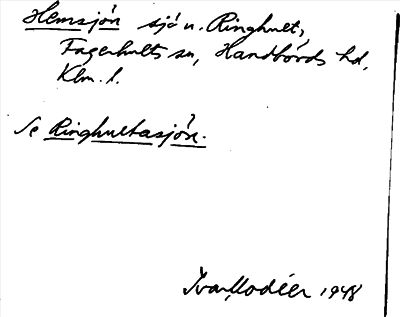 Hemsjön sjö n. Ringhult,
Fagerhults sn, Handbörds hd,
Klm. l.
Se Ringhultasjön.
Ivar Modéer 1948